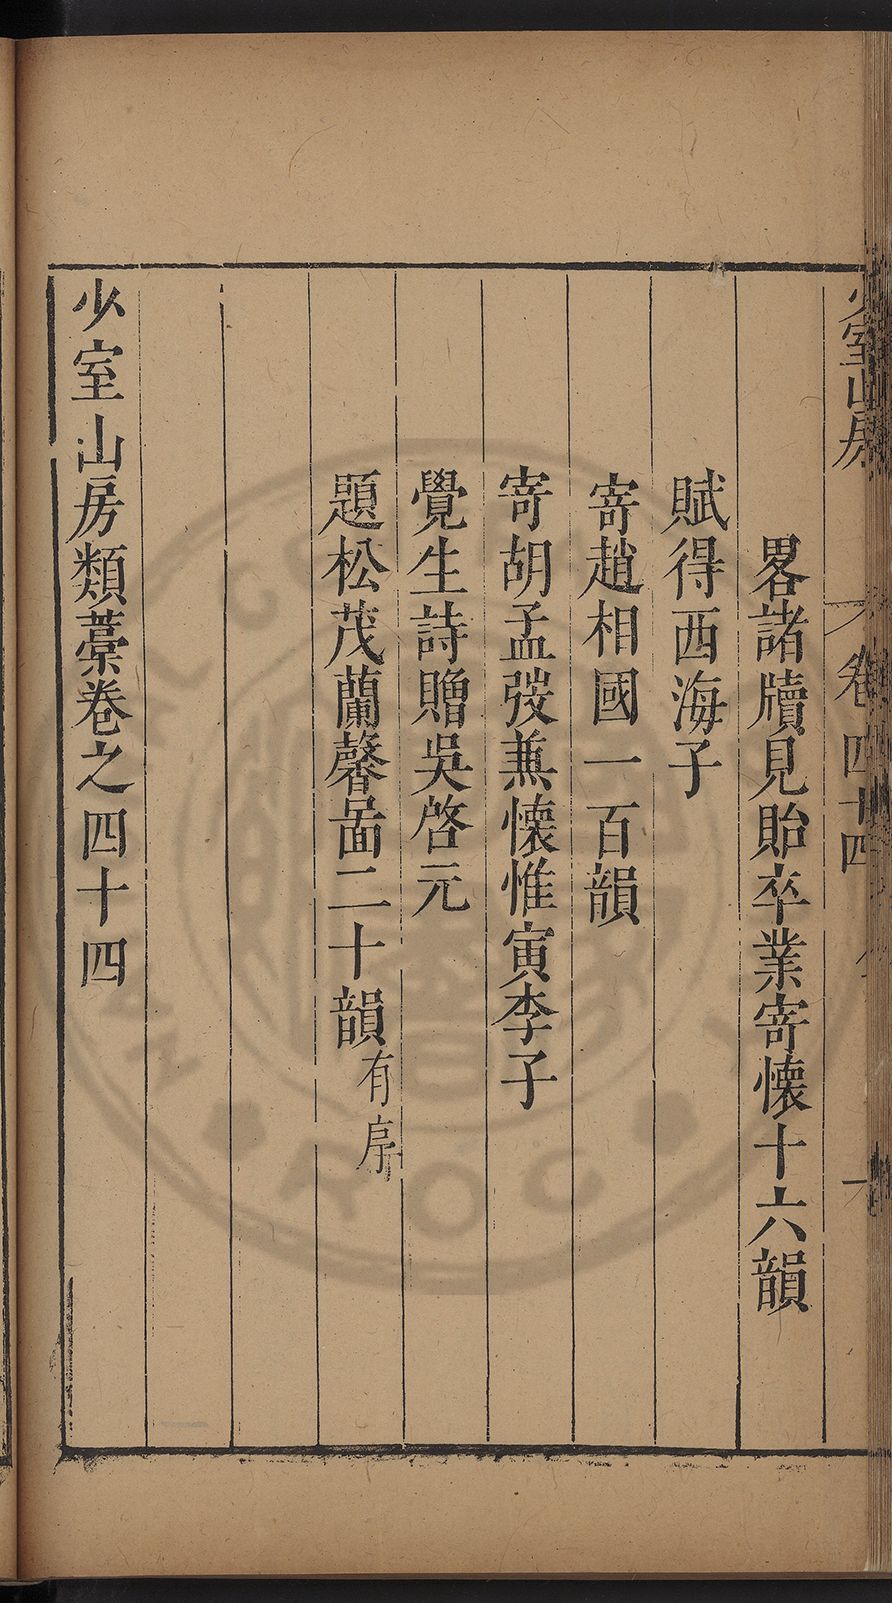 少室山房 卷四十四
畧諸牘見貽卒業寄懷十六韻
賦得西海子
寄趙相國一百韻
寄胡孟弢蕪懷惟寅李子
覺生詩贈吳啓元
題松茂蘭馨啚二十韻有序
少室山房類藁卷之四十四